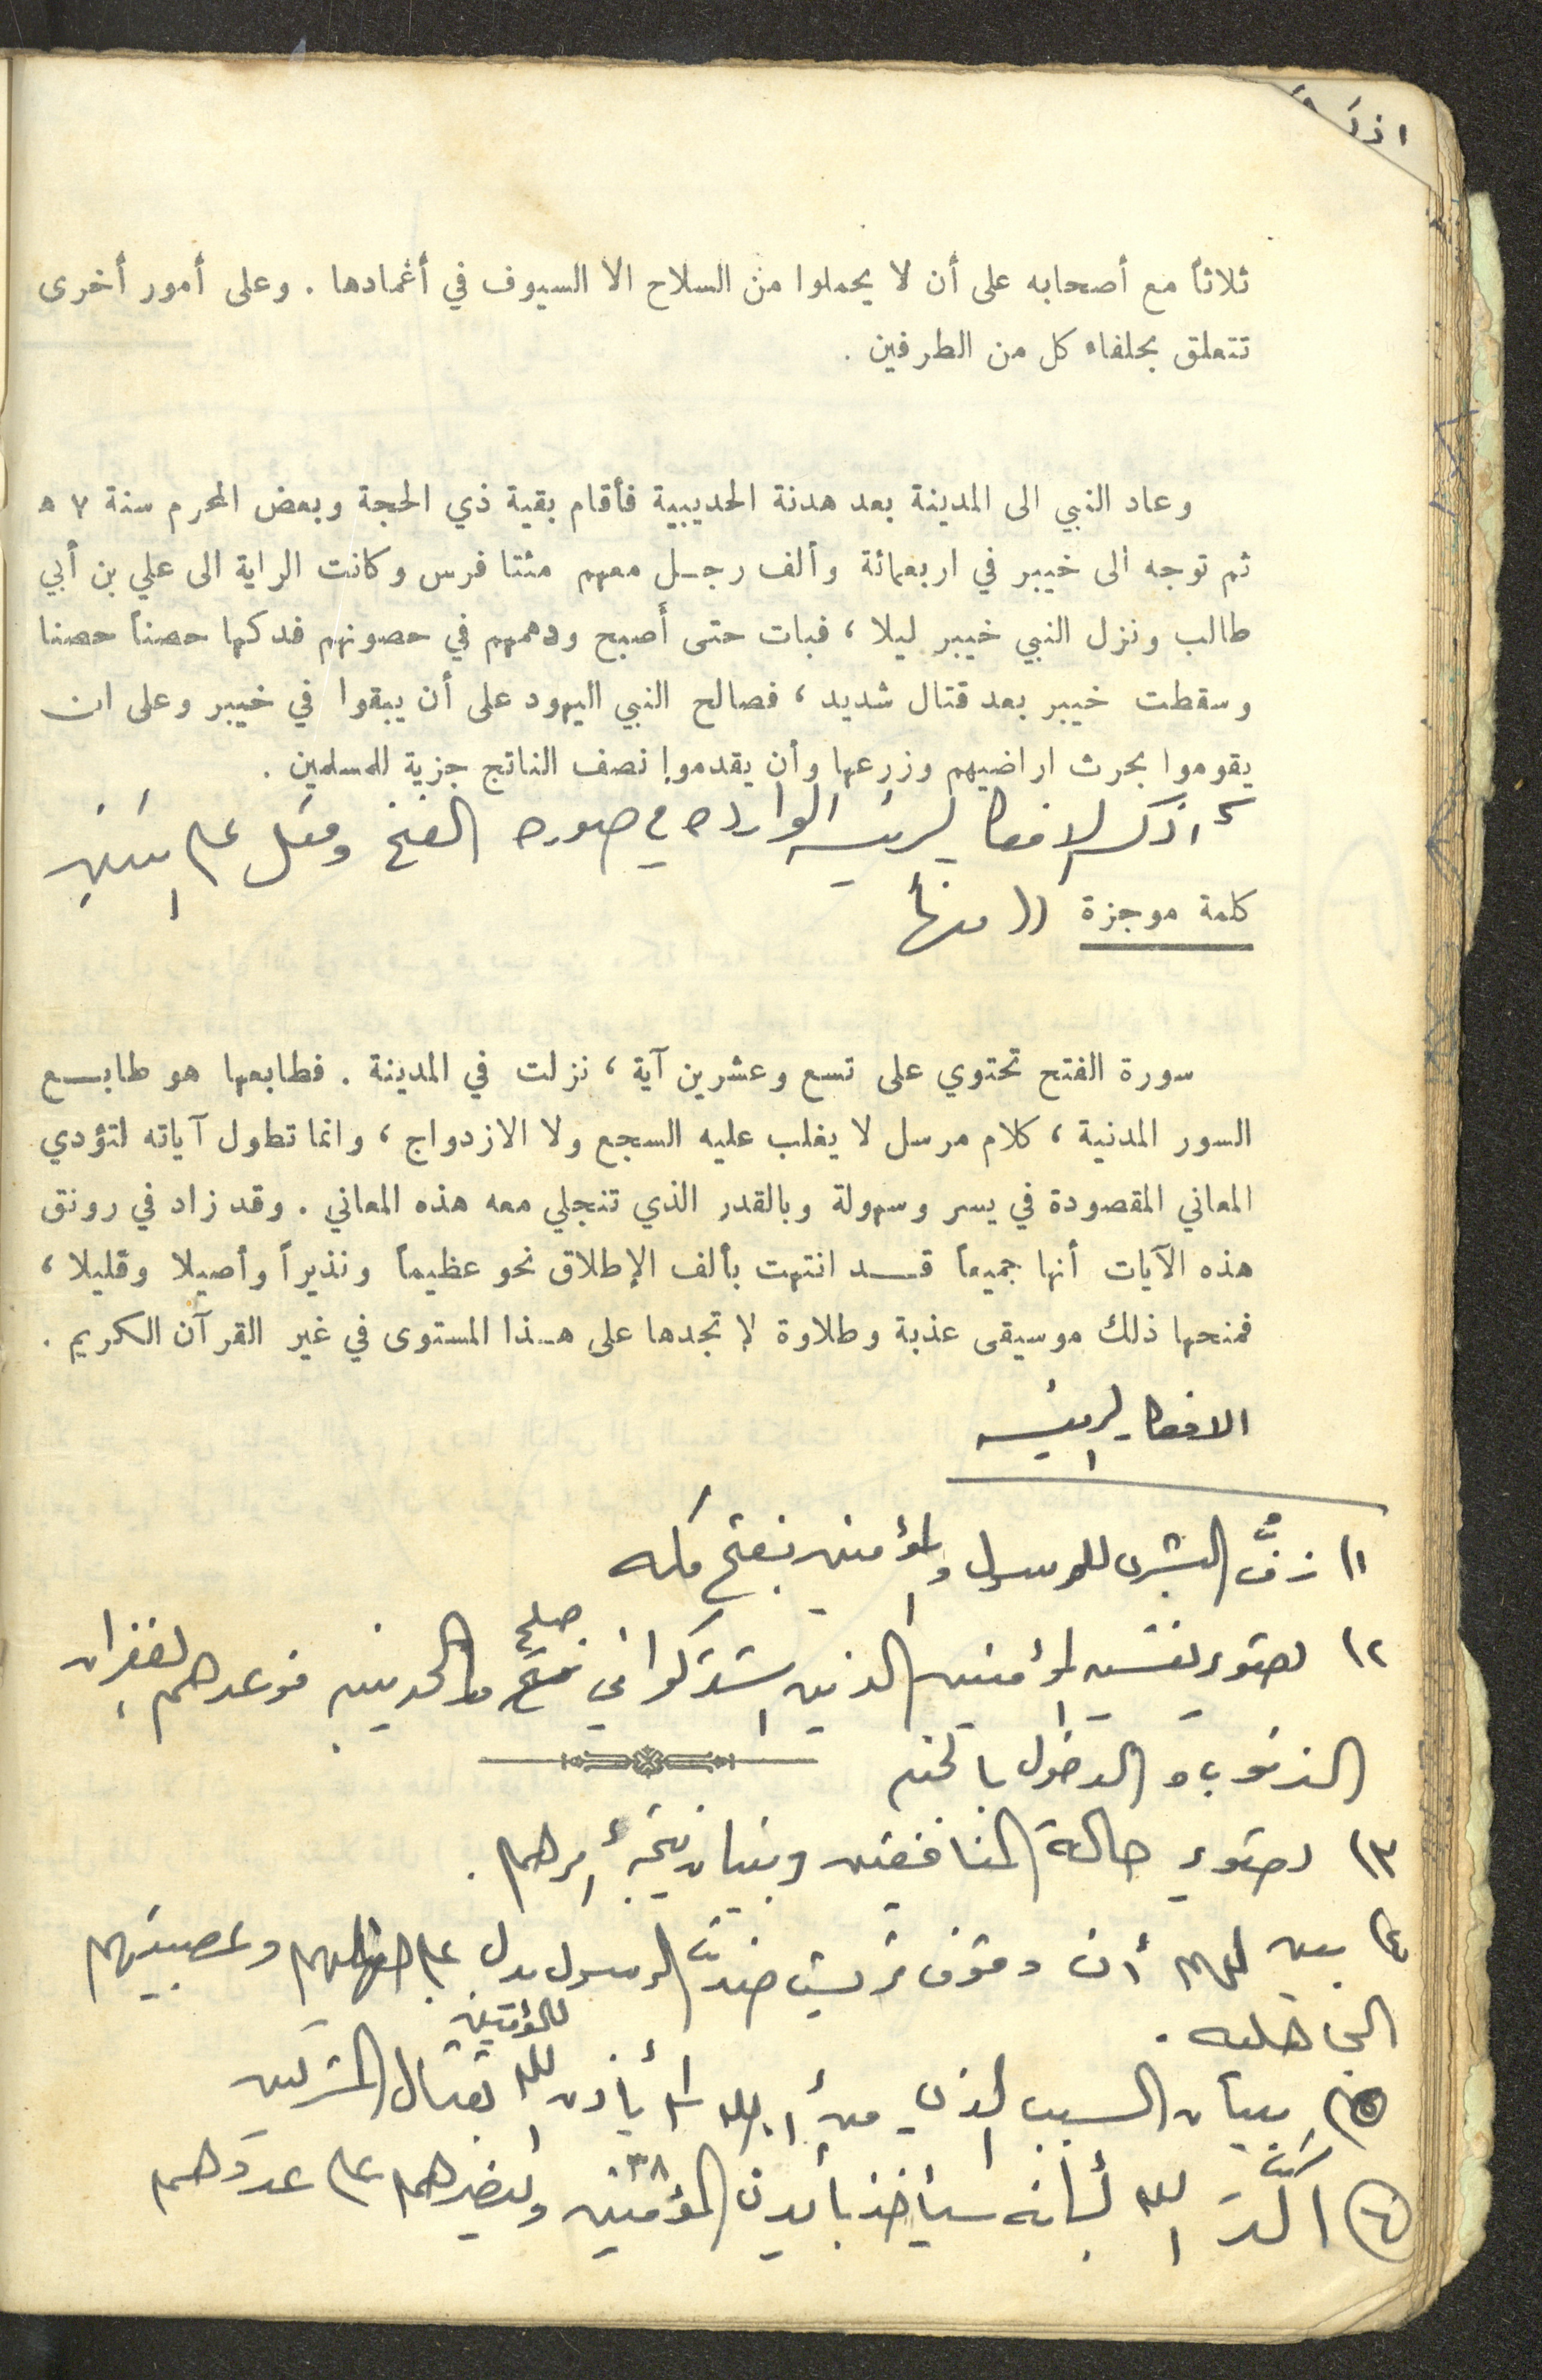 اذكر
ثلاثاً مع أصحابه على أن لا يحملوا من السلاح الا السيوف في أغمادها . وعلى أمور أخرى
تتعلق بحلفاء كل من الطرفين .
وعاد النبي الى المدينة بعد هدنة الحديبية فأقام بقية ذي الحجة وبعض المحرم سنة ٧ ه
ثم توجه الى خيبر في اربعمائة وألف رجل معهم مئتا فرس وكانت الراية الى علي بن أبي
طالب ونزل النبي خيبر ليلا ، فبات حتى أصبح ودهمهم في حصونهم فدكها حصناً حصنا
وسقطت خيبر بعد قتال شديد ، فصالح النبي اليهود على أن يبقوا في خيبر وعلى ان
يقوموا بحرث اراضيهم وزرعها وأن يقدموا نصف الناتج جزية للمسلمين .
اذكر الافكار الرئيسيه الوارده في صورة الفتح ومثل على اثنين
كلمة موجزة (( منها
سورة الفتح تحتوي على تسع وعشرين آية ، نزلت في المدينة . فطابعها هو طابع
السور المدنية ، كلام مرسل لا يغلب عليه السجع ولا الازدواج ، وانما تطول آياته لتؤدي
المعاني المقصودة في يسر وسهولة وبالقدر الذي تنجلي معه هذه المعاني . وقد زاد في رونق
هذه الآيات أنها جميعاً قد انتهت بألف الإطلاق نحو عظيماً ونذيراً وأصيلا وقليلا ،
فمنحها ذلك موسيقى عذبة وطلاوة لا تجدها على هذا المستوى في غير القرآن الكريم .
الافكار الرئيسيه
١) زفُّ البشرى للرسول والمؤمنين بفتح مكه
٢) تصوير نفسيه المؤمنين الذين اشتركوا في صلح الحديبيه فوعدهم بغفران
الذنوب و الدخول بالجنه
٣) تصوير حالة المنافقين وبيان نتيجة أمرهم .
٤) بين الله أن وقوف قريش ضدّ الرسول يدل على جهلهم وعصبيتهم
الجاهليه .
٥) بيان السبب الذي من أجله لم يأذن الله للمؤمنين بقتال المشركين
٦) اكّد الله بأنه سيأخذ بأيدي المؤمنين وينصرهم على عدوهم
٣٨